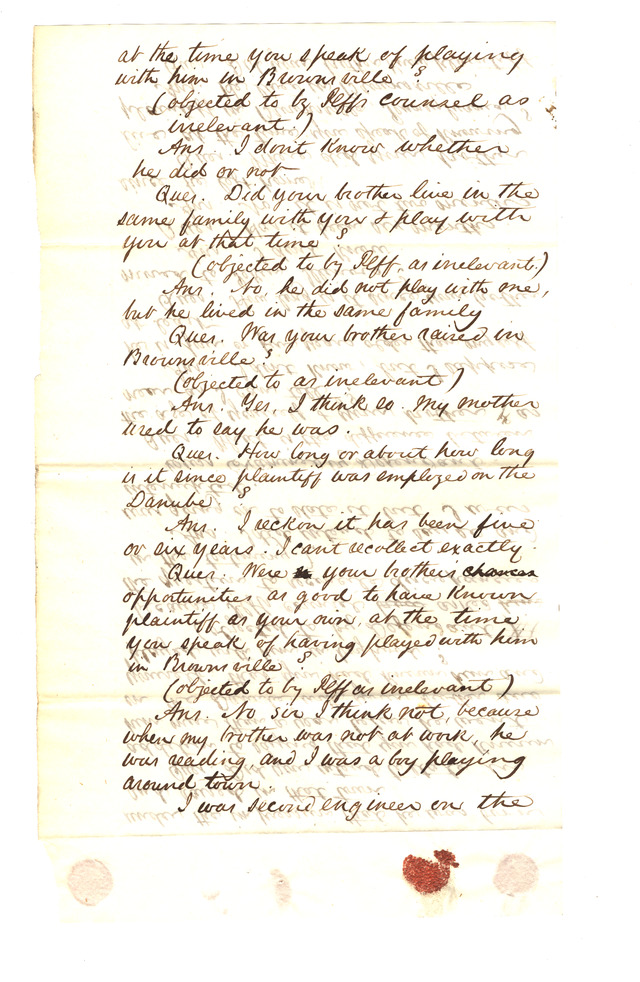 at the time you speak of playing
with him in Brownsville?
(objected to by Plffs counsel as
irrelevant.)
Ans. I dont know whether
he did or not
Ques. Did your brother live in the
same family with you & play with
you at that time?
(objected to by Plff. as irrelevant.)
Ans. No, he did not play with me,
but he lived in the same family
Ques. Was your brother raised in
Brownsville?
(objected to as irrelevant)
Ans. Yes, I think so. My mother
used to say he was.
Ques. How long or about how long
is it since plaintiff was employed on the
Danube?
Ans. I reckon it has been five
or six years. I cant recollect exactly.
Ques. Were your brother's chances
opportunities as good to have known
plaintiff as your own, at the time
you speak of having played with him
in Brownsville?
(objected to by Plff as irrelevant)
Ans. No sir I think not, because
when my brother was not at work, he
was reading, and I was a boy playing
around town.
I was second engineer on the